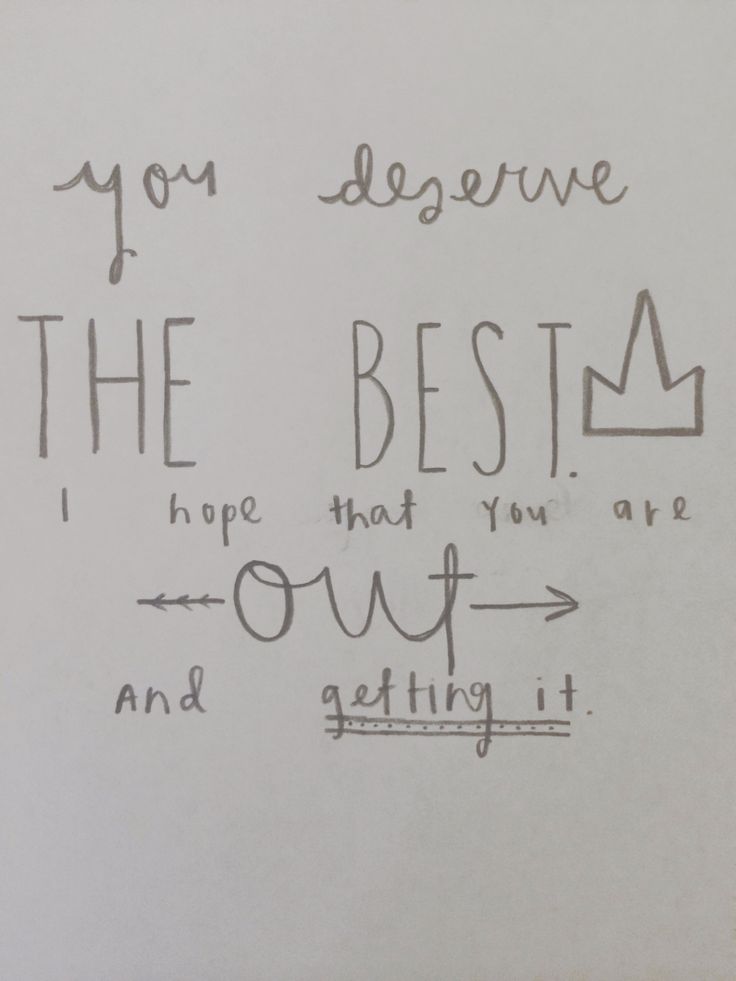 you deserve
THE BEST.
I hope that you are
out
And getting it.